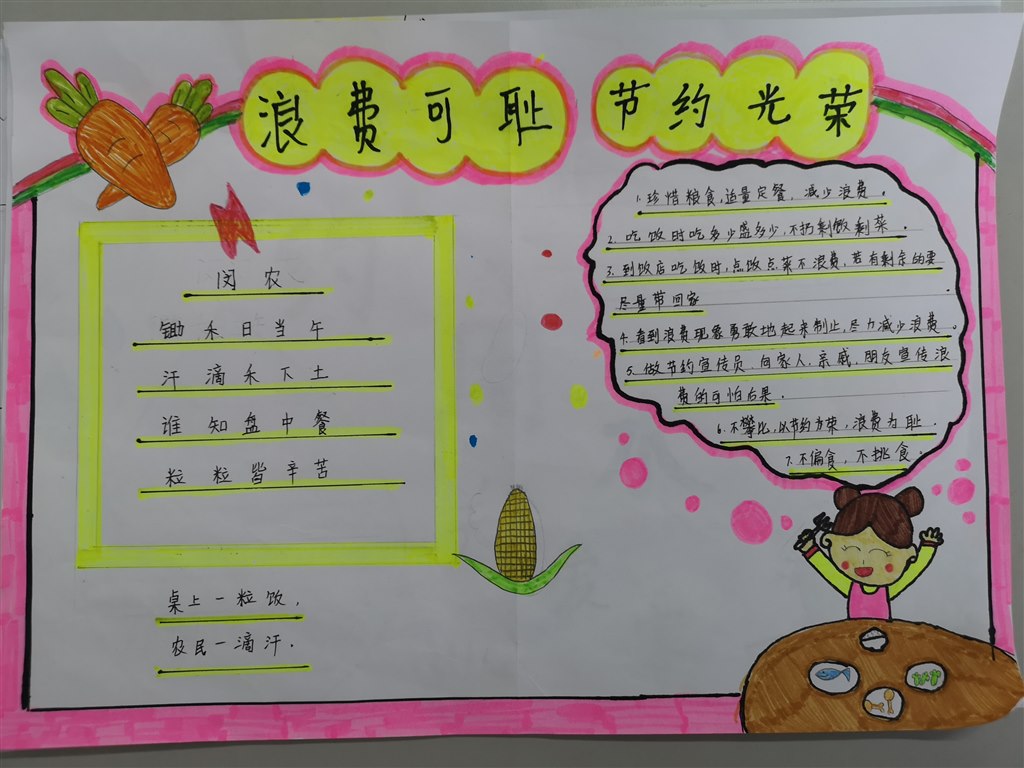 浪费可耻
节约光荣
闵农
锄禾日当午
汗滴禾下土
谁知盘中餐
粒粒皆辛苦
桌上一粒饭，
农民一滴汗.
1.珍惜粮食,适量定餐，减少浪费。
2.吃饭时吃多少盛多少,不扔剩饭剩菜。
3.到饭店吃饭时,点饭点菜不浪费,若有剩余的要
尽量带回家.
4.看到浪费现象勇敢地起来制止,尽力减少浪费。
5.做节约宣传员.向家人,亲戚,朋友宣传浪
费的可怕后果.
6.不攀比,以节约为荣,浪费为耻.
7.不偏食,不挑食.